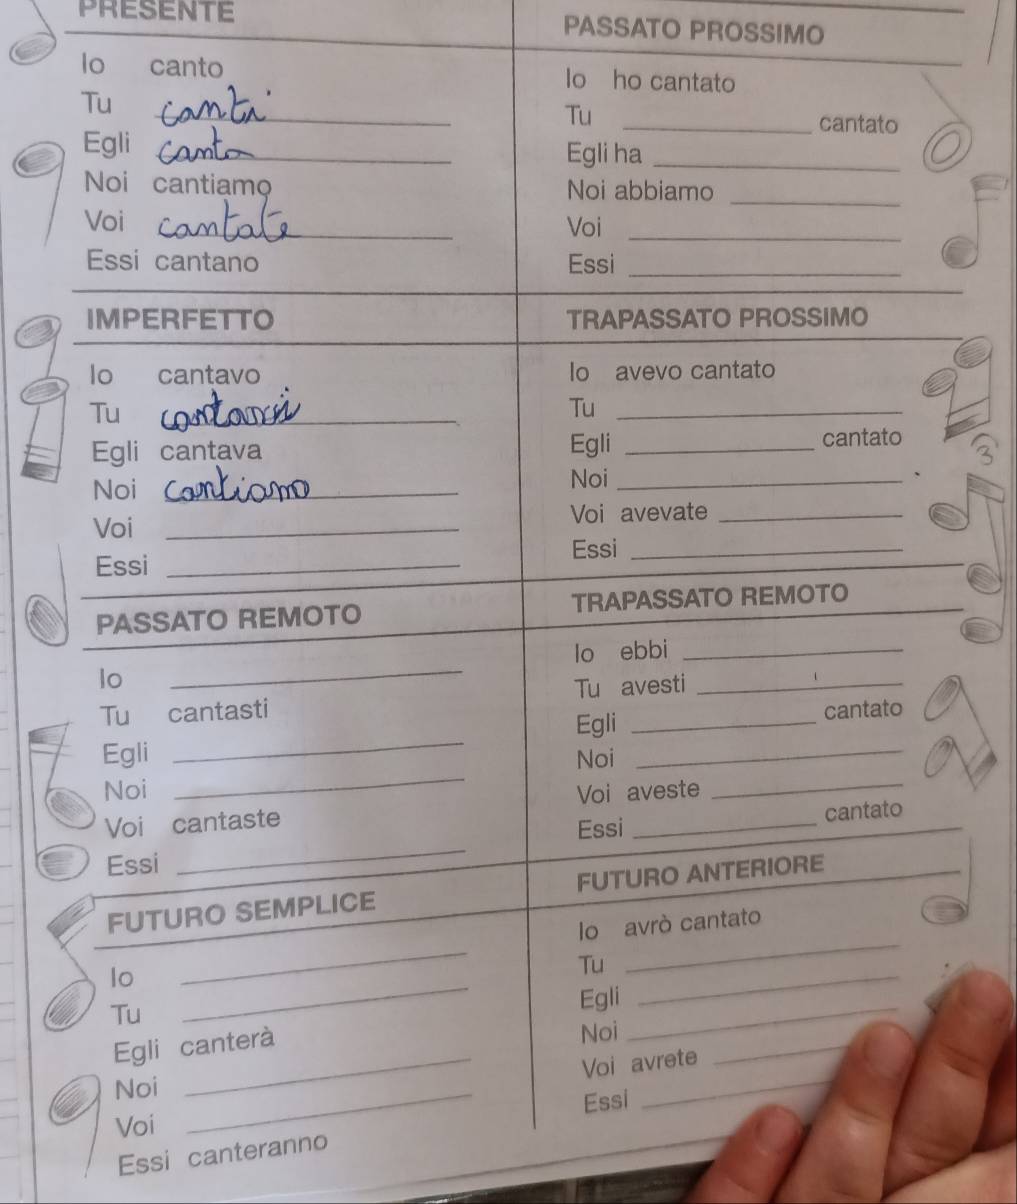 PRESENTE
Io canto
Tu canti
Egli canto
Noi cantiamo
Voi cantate
Essi cantano
PASSATO PROSSIMO
Io ho cantato
Tu cantato
Egli ha
Noi abbiamo
Voi
Essi
IMPERFETTO
Io cantavo
Tu cantavi
Egli cantava
Noi cantiamo
Voi
Essi
TRAPASSATO PROSSIMO
Io avevo cantato
Tu
Egli cantato
Noi
Voi avevate
Essi
3
PASSATO REMOTO
Io
Tu cantasti
Egli
Noi
Voi cantaste
Essi
TRAPASSATO REMOTO
Io ebbi
Tu avesti
Egli cantato
Noi
Voi aveste
Essi cantato
FUTURO SEMPLICE
Io
Tu
Egli canterà
Noi
Voi
Essi canteranno
FUTURO ANTERIORE
Io avrò cantato
Tu
Egli
Noi
Voi avrete
Essi